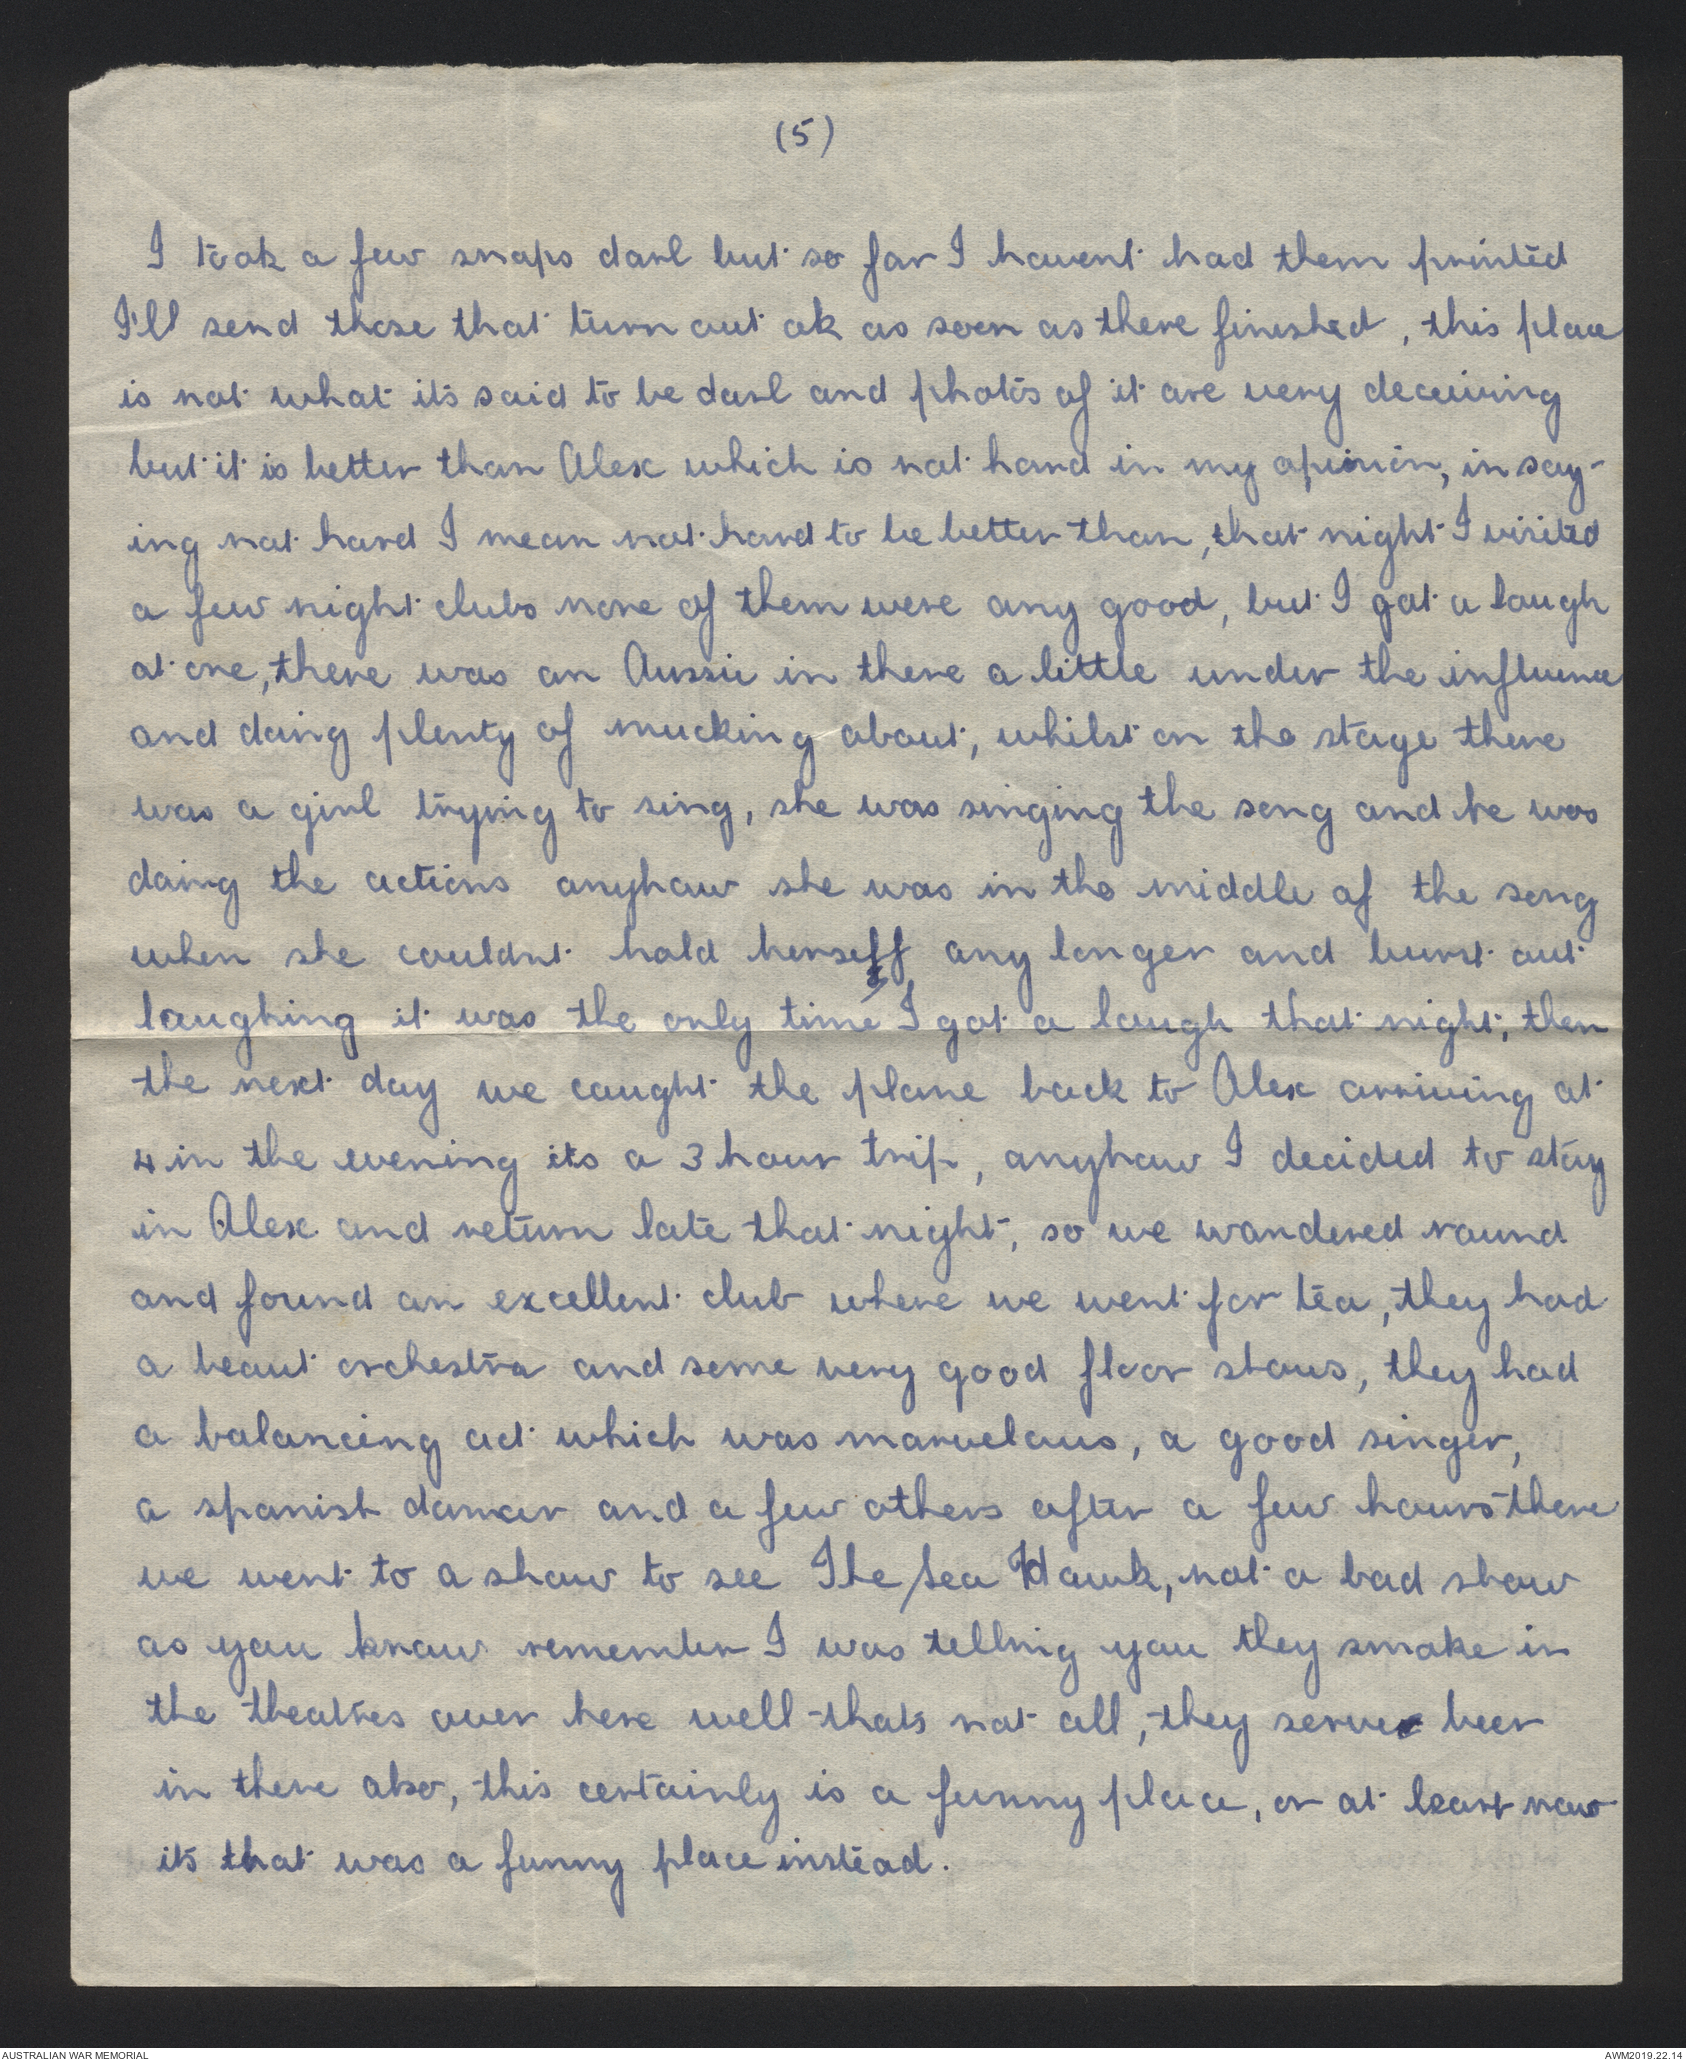 (5)
I took a few snaps darl but so far I havent had them printed
I'll send those that turn out ok as soon as there finished, this place
is not what its said to be darl and photos of it are very deceiving
but it is better than Alex which is not hard in my opinion, in say-
ing not hard I mean not hard to be better than, that night I visited
a few night clubs none of them were any good, but I got a laugh
at one, there was an Aussie in there a little under the influence
and doing plenty of mucking about, whilst on the stage there
was a girl trying to sing, she was singing the song and he was
doing the actions anyhow she was in the middle of the song
when she couldnt hold herself any longer and burst out
laughing it was the only time I got a laugh that night, then
the next day we caught the plane back to Alex arriving at
4 in the evening its a 3 hour trip, anyhow I decided to stay
in Alex and return late that night, so we wandered round
and found an excellent club where we went for tea, they had
a beaut orchestra and some very good floor shows, they had
a balancing act which was marvelous, a good singer,
a spanish dancer and a few others after a few hours there
we went to a show to see The Sea Hawk, not a bad show
as you know remember I was telling you they smoke in
the theatres over here well thats not all, they serve beer
in there also, this certainly is a funny place, or at least now
its that was a funny place instead.
AUSTRALIAN WAR MEMORIAL
AWM2019.22.14